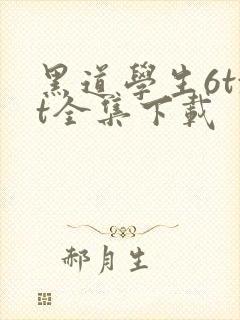 黑道學生6t
t全集下載
郝月生